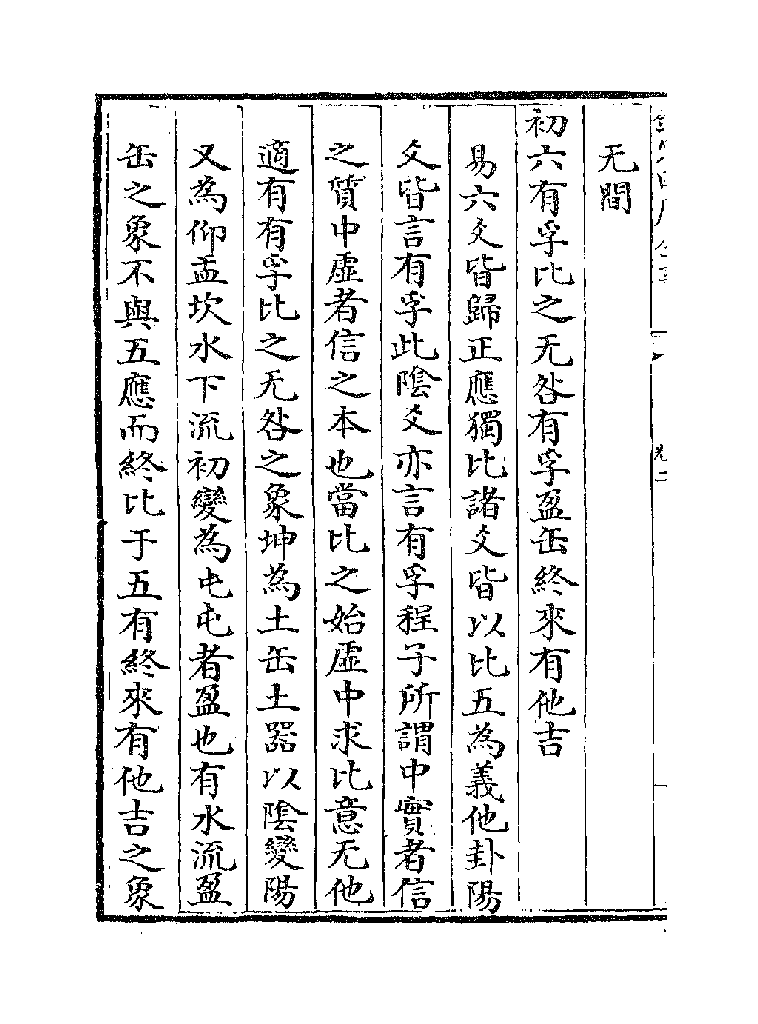 无間
初六有孚比之无咎有孚盈缶終來有他吉
易六爻皆歸正應獨比諸爻皆以比五為義他卦陽
爻皆言有孚此隂爻亦言有孚程子所謂中實者信
之質中虛者信之本也當比之始虛中求比意无他
適有有孚比之无咎之象坤為土缶土器以隂變陽
又為仰盂坎水下流初變為屯屯者盈也有水流盈
缶之象不與五應而終比于五有終來有他吉之象